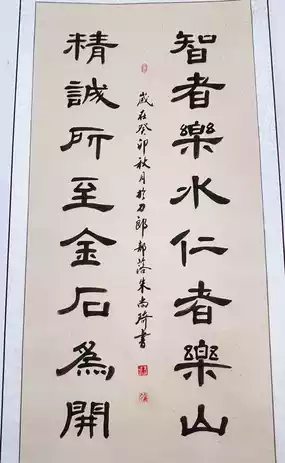 智者樂水仁者樂山
精誠所至金石為開
歲在癸卯秋月於刀郎部落朱尚琦書